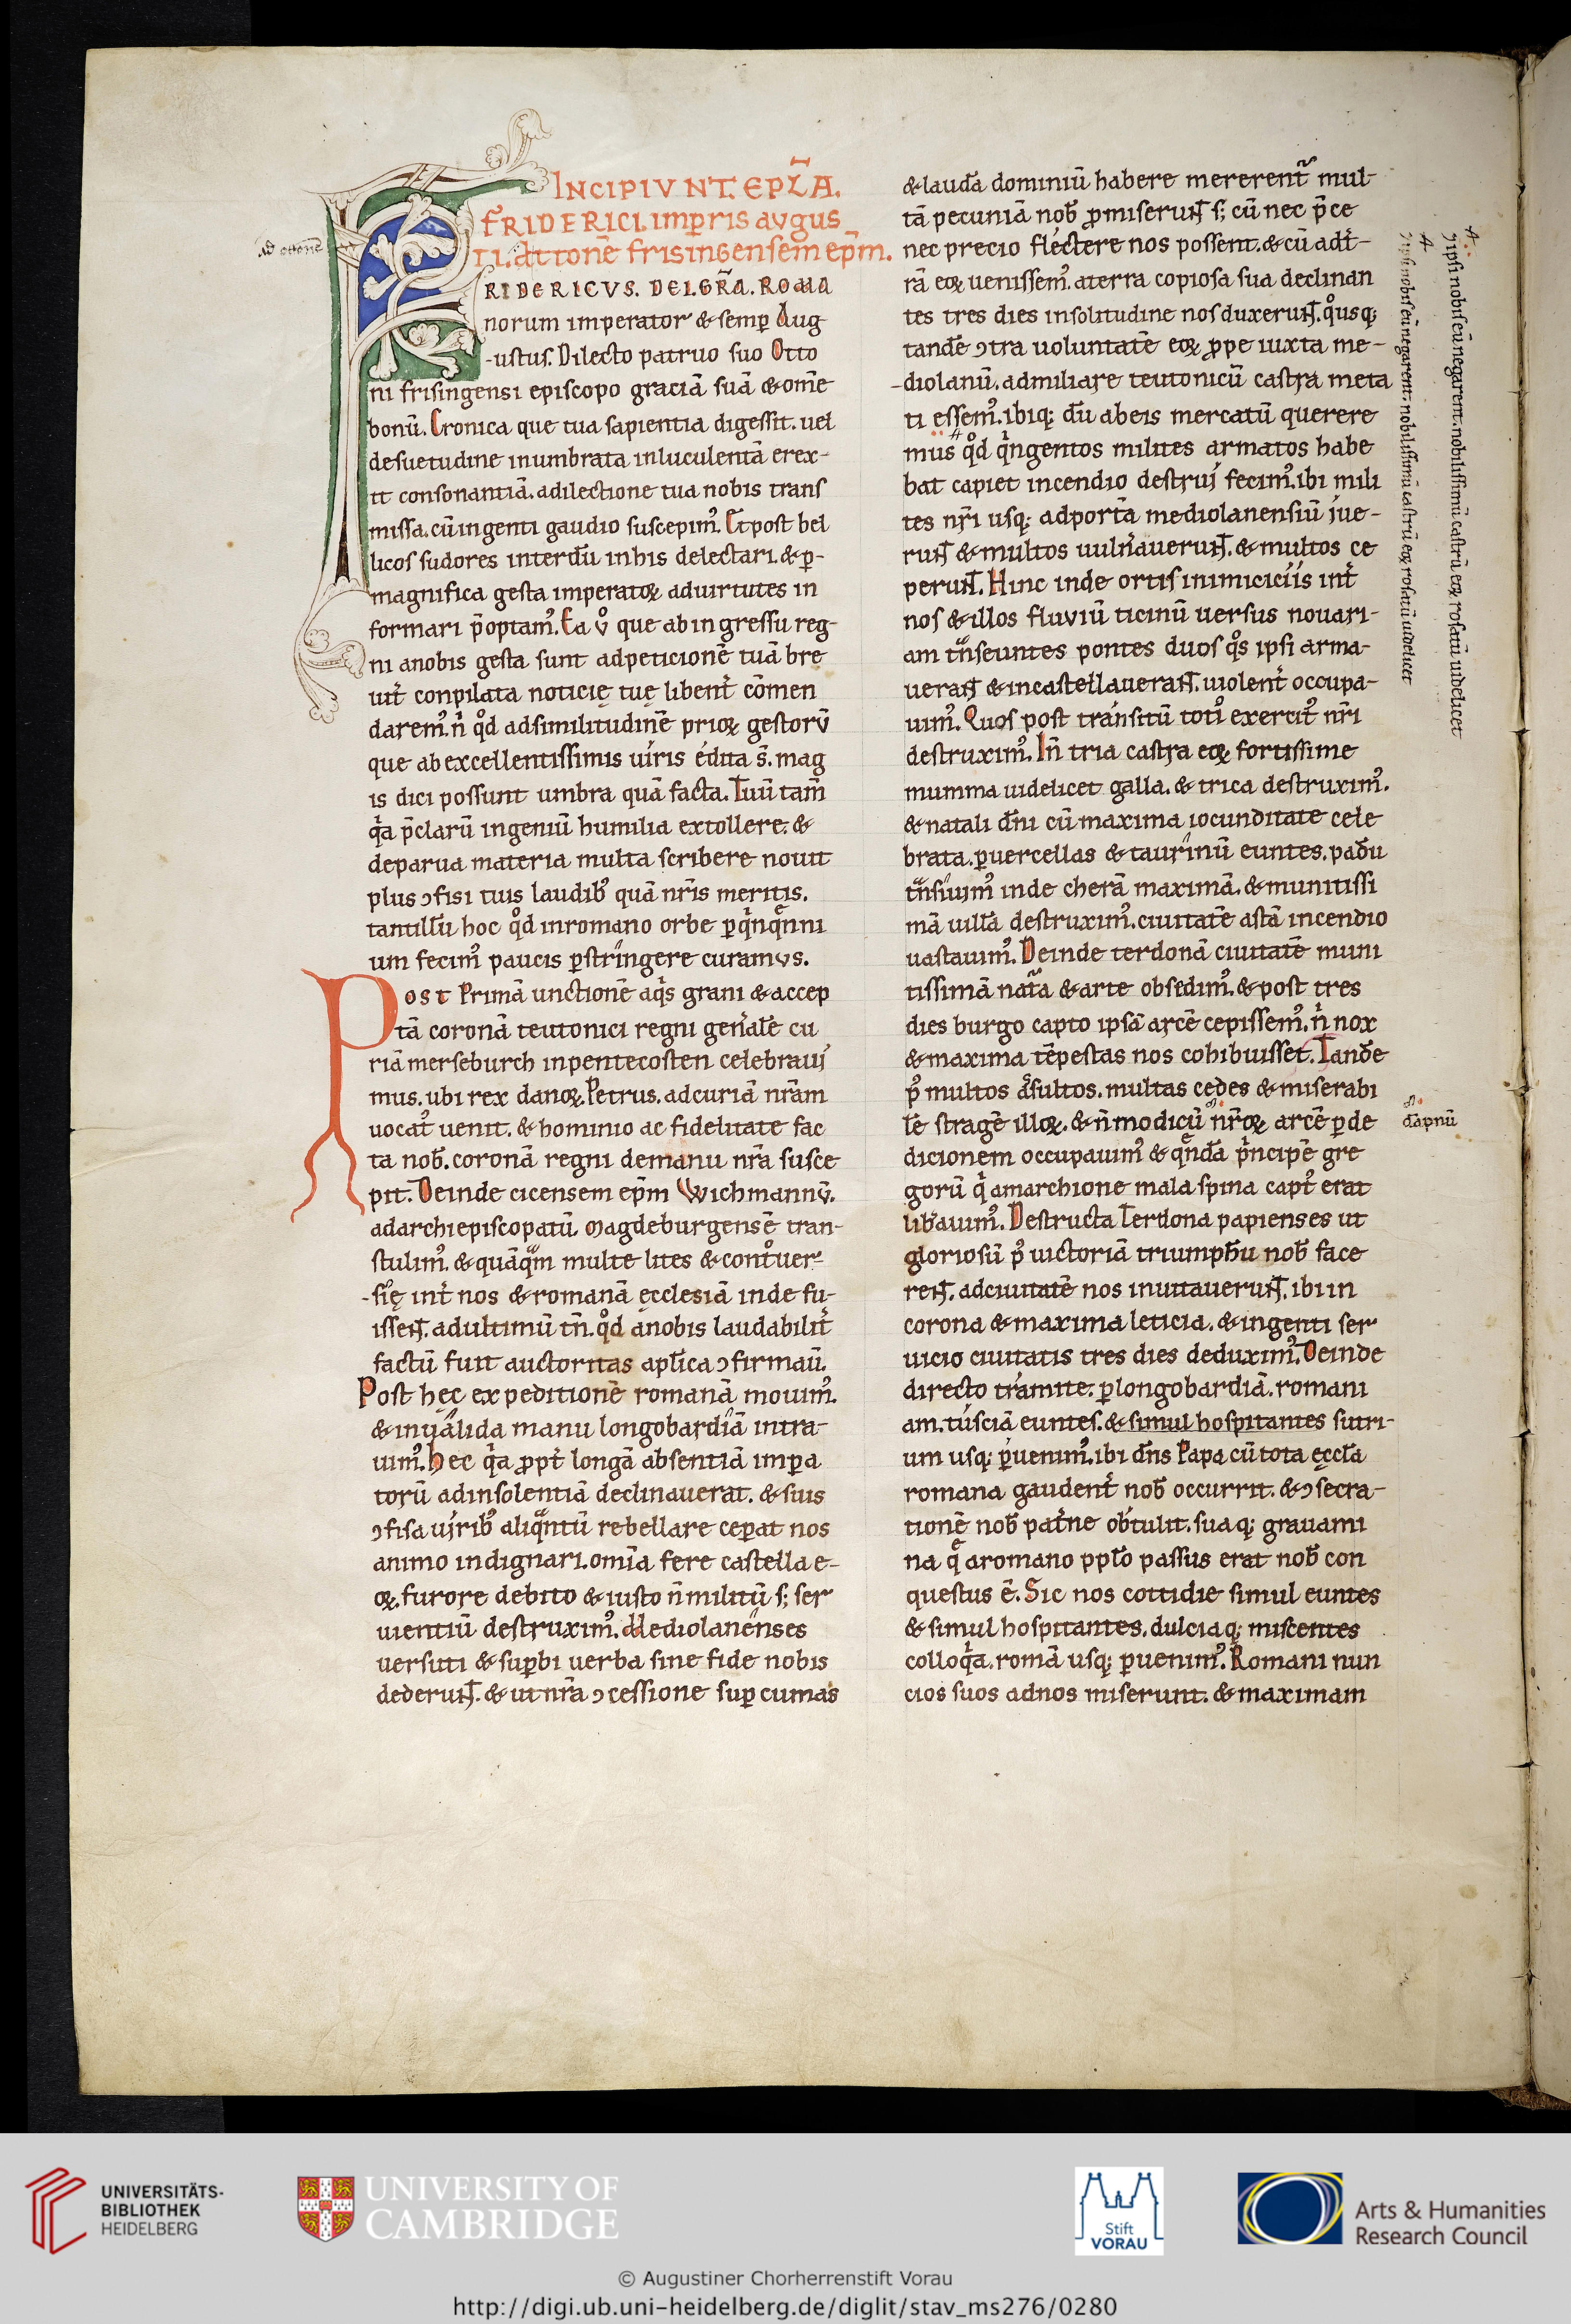 INCIPIVNT. EPL̄A.
FRIDERICI. imp̄ris avgus
Ad ottonē
TI. At tonē frisingensem ep̄m.
RIDERICVS. DEI. GR̄A. ROMA
norum imperator & semp̲ Aug
-ustus. Dilecto patruo suo Otto
ni frisingensi episcopo graciā suā & om̄e
bonū. Cronica que tua sapientia digessit. uel
desuetudine inumbrata inluculentā erex-
it consonantiā. adilectione tua nobis trans
missa. cū ingenti gaudio suscepimꝰ. Et post bel
licos sudores interdū inhis delectari. & ꝑ-
magnifica gesta imperatoꝝ aduirtutes in
formari p̄optamꝰ. Ea v̊ que ab in gressu reg-
ni anobis gesta sunt adpeticionē tuā bre
uit̓ conpilata noticię tuę libent̓ cōmen
daremꝰ. n̓ qd̊ adsimilitudinē prioꝝ gestorū
que ab excellentissimis uiris édita s̄. mag
is dici possunt umbra quā facta. Tuū tam̄
q̓a p̄clarū ingeniū humilia extollere. &
deparua materia multa scribere nouit
plus ↄfisi tuis laudibꝰ quā nr̄is meritis.
tantillū hoc qd̊ inromano orbe ꝑq̓nqᷓnni
um fecimꝰ paucis ꝑstringere curamvs.
Post Primā unctionē aq̓s grani & accep
tā coronā teutonici regni gen̓alē cu
riā merseburch inpentecosten celebraui
mus. ubi rex danoꝝ. Petrus. adcuriā nr̄am
uocatꝰ uenit. & hominio ac fidelitate fac
ta nob̄. coronā regni demanu nr̄a susce
pit. Deinde cicensem ep̄m Wichmannū.
adarchiepiscopatū. Magdeburgensē tran-
stulimꝰ. & quāqᷓm multe lites & cont̊uer-
-się int̓ nos & romanā ęcclesiā inde fu-
issent. adultimū tn̄. qd̊ anobis laudabilit̓
factū fuit auctoritas apl̄ica ↄfirmau̅.
Post hęc expeditionē romanā mouimꝰ.
& inualida manu longobardiā intra-
uimꝰ. hec q̓a ꝓpt̓ longā absentiā imꝑa
torū adinsolentiā declinauerat. & suis
ↄfisa uiribꝰ aliqᷓntū rebellare ceꝑat nos
animo indignari. omīa fere castella e-
oꝝ. furore debito & iusto n̄ militū s; ser
uientiū destruximꝰ. Mediolanenses
uersuti & suꝑbi uerba sine fide nobis
dederunt. & ut nr̄a ↄcessione suꝑ cumas
& lauda dominiū habere mererentᷣ mul-
tā pecuniā nob̄ ꝓmiserunt s; cū nec p̄ce
nec precio fléctere nos possent. & cū adt̓-
rā eoꝝ uenissemꝰ. aterra copiosa sua declinan
tes tres dies insolitudine nos duxerunt. q̊usq;
tandē ↄtra uoluntatē eoꝝ ꝓpe iuxta me-
-diolanū. admiliare teutonicū castra meta
ti essemꝰ. ibiq; dū abeis mercatū querere
mus qd̊ q̓ngentos milites armatos habe
bat capiet incendio destrui fecimꝰ. ibi mili
tes nr̄i usq; adportā mediolanensiū iue-
runt & multos uuln̓auerunt. & multos ce
perunt. Hinc inde ortis inimiciciis int̓
nos & illos fluviū ticinū uersus nouari-
am tᷓnseuntes pontes duos q̊s ipsi arma-
uerant & incastellauerant. uiolent̓ occupa-
uimꝰ. Quos post tránsitū totiꝰ exercitꝰ nr̄i
destruximꝰ. In̄ tria castra eoꝝ fortissime
mumma uidelicet galla. & trica destruximꝰ.
& natali dn̄i cū maxima iocunditate cele
brata. ꝑuercellas & taurinū euntes. padū
tᷓnsiuimꝰ inde cherā maximā. & munitissi
mā uillā destruximꝰ. ciuitatē astā incendio
uastauimꝰ. Deinde terdonā ciuitatē muni
tissimā natᷓa & arte obsedimꝰ. & post tres
dies burgo capto ipsā arcē cepissemꝰ. n̓ nox
& maxima tēpestas nos cohibuisset. Tandē
pꝰ multos ásultos. multas cedes & miserabi
lē stragē illoꝝ. & n̄ modicū nr̄oꝝ arcē ꝑ de
dāpnū
dicionem occupauimꝰ & qᷓndā p̓ncipē gre
gorū q̓ amarchione mala spina captꝰ erat
lib̓auimꝰ. Destructa Terdona papienses ut
gloriosū pꝰ uictoriā triumphū nob̄ face
rent. adciuitatē nos inuitauerunt. ibi in
corona & maxima leticia. & ingenti ser
uicio ciuitatis tres dies deduximꝰ. Deinde
directo trámite. ꝑlongobardiā. romani
am. túsciā euntes. & simul hospitantes sutri-
um usq; ꝑuenimꝰ. ibi dn̄s Papa cū tota ęccl̄a
romana gaudent̓ nob̄ occurrit. & ↄsecra-
tionē nob̄ pat̓ne obtulit. suaq; grauami
na qᷓ aromano ppl̄o passus erat nob̄ con
questus ē. Sic nos cottidie simul euntes
& simul hospitantes. dulciaq; miscentes
colloq̓a. romā usq; ꝑuenimꝰ. Romani nun
cios suos adnos miserunt. & maximam
⁊ ipsi nobis eū negarent. nobilissimū castrū eoꝝ rosatū uidelicet
⁊ ipsi nobis eū negarent. nobilissimū castrū eoꝝ rosatū uidelicet
UNIVERSITÄTS-
BIBLIOTHEK
HEIDELBERG
UNIVERSITY OF
CAMBRIDGE
Stift
VORAU
Arts & Humanities
Research Council
© Augustiner Chorherrenstift Vorau
http://digi.ub.uni-heidelberg.de/diglit/stav_ms276/0280